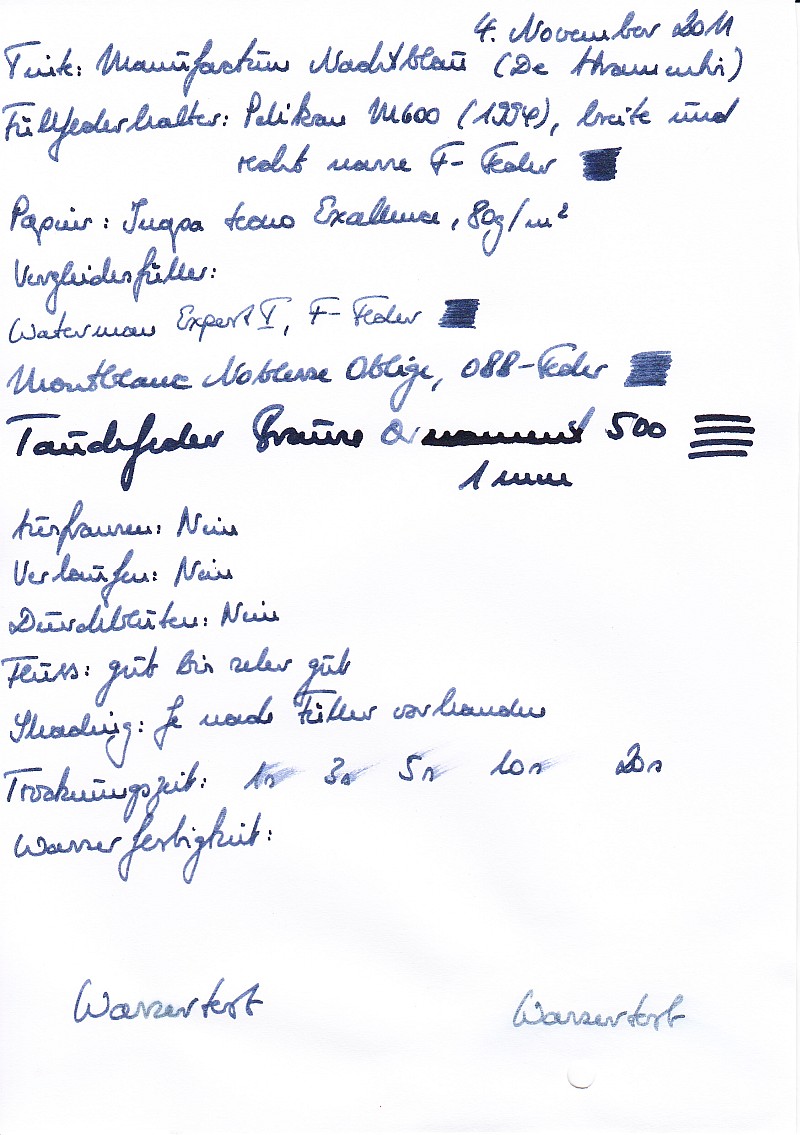 4. November 2011
Tinte: Manufactum Nachtblau (De Atramentis)
Füllfederhalter: Pelikan M600 (1994), breite und
recht nasse F-Feder
Papier: Inapa tecno Excellence, 80g/m²
Vergleichsfüller:
Waterman Expert I, F-Feder
Montblanc Noblesse Oblige, 088-Feder
Tauchfeder Brause Ornament 500
1 mm
Ausfransen: Nein
Verlaufen: Nein
Durchbluten: Nein
Fluss: gut bis sehr gut
Shading: Je nach Füller vorhanden
Trocknungszeit: 1s 3s 5s 10s 20s
Wasserfestigkeit:
Wassertest Wassertest